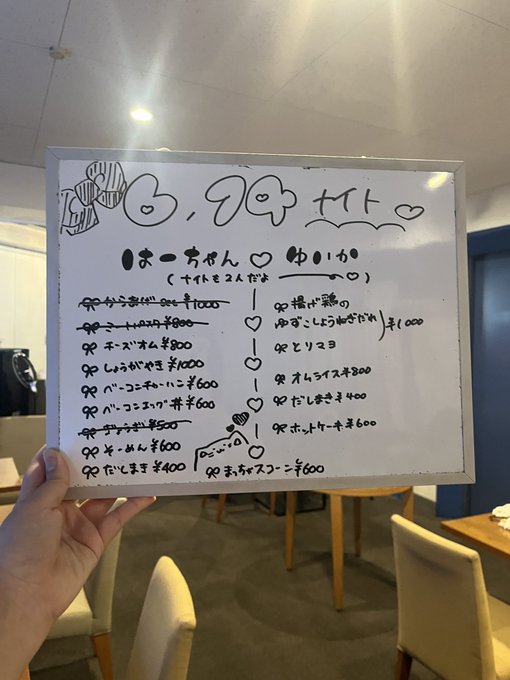 6,24 ナイト
はーちゃん ♡ ゆいか
(ナイトも2人だよ ♡)
からあげ ¥1000
ミートパスタ ¥800
チーズオム ¥800
しょうがやき ¥1000
ベーコンチャーハン ¥600
ベーコンエッグ丼 ¥600
ぎょうざ ¥500
そーめん ¥600
だしまき ¥400
揚げ鶏の
ゆずこしょうねぎだれ
とりマヨ
¥1000
オムライス ¥800
だしまき ¥400
ホットケーキ ¥600
まっちゃスコーン ¥600